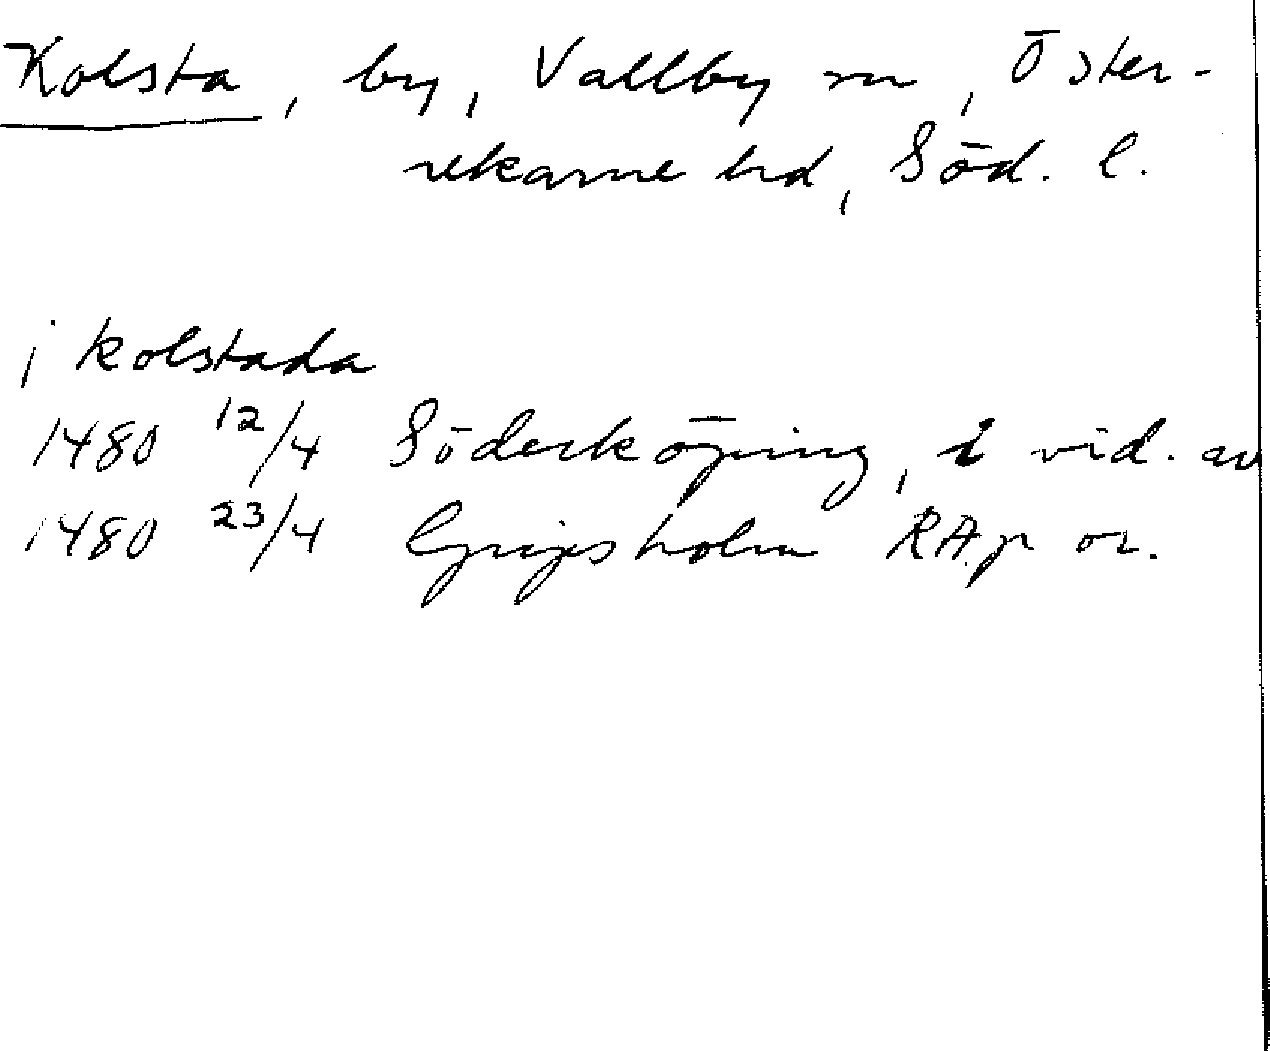 Kolsta, by, Vallby sn, Öster-
rekarne hd, Söd. l.
i kolstada
1480 12/4 Söderköping, i vid. av
1480 23/4 Gripsholm RAp or.